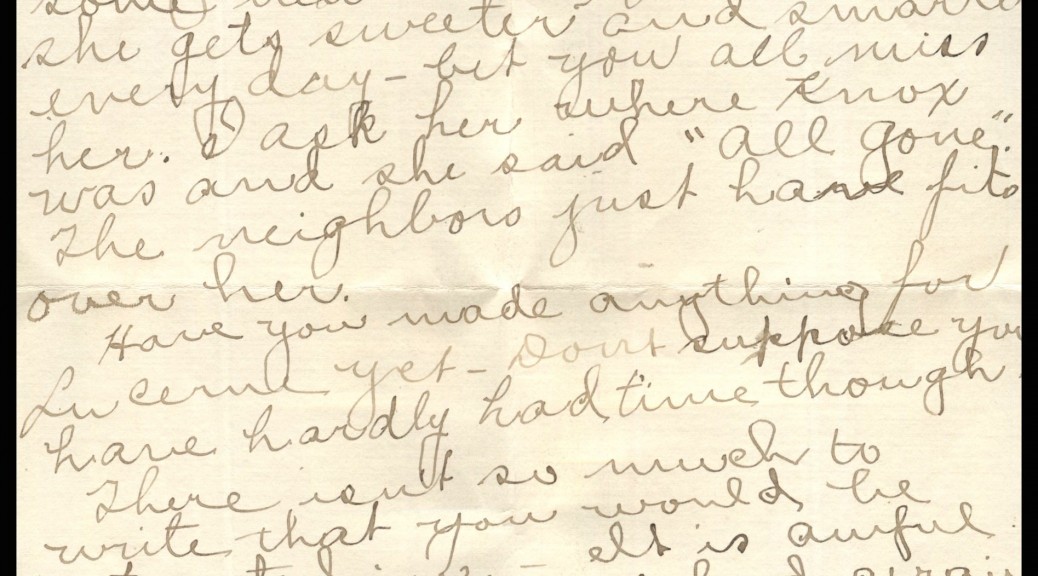 she gets sweeter and smarter
every day - bet you all miss
her. I ask her where Knox
was and she said "all gone".
The neighbors just have fits
over her.
Have you made anything for
Lucerne yet - Dont suppose you
have hardly had time though
There isnt so much to
write that you would be
It is awful